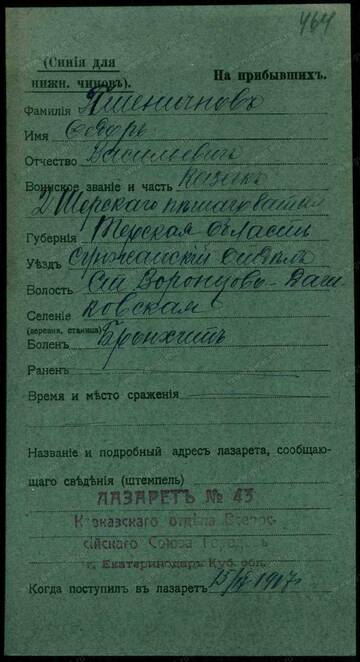 464
(Синія для
нижн. чиновъ).
На прибывшихъ.
Фамилія Пшеничновъ
Имя Ѳедоръ
Отчество Васильевичъ
Воинское званіе и часть казакъ
2 Терскаго пѣшаго батал
Губернія Терская область
Уѣздъ Сунженскій отдѣлъ
Волость Ст Воронцово-Даш
Селеніе ковская
(деревня, станица)
Боленъ Бронхитъ
Раненъ
Время и мѣсто сраженія
Названіе и подробный адресъ лазарета, сообщаю-
щаго свѣдѣнія (штемпель)
ЛАЗАРЕТЪ № 43
Кавказскаго отдѣла Всерос
сійскаго Союза Городовъ
г. Екатеринодаръ Куб. обл.
Когда поступилъ въ лазаретъ 1917 г